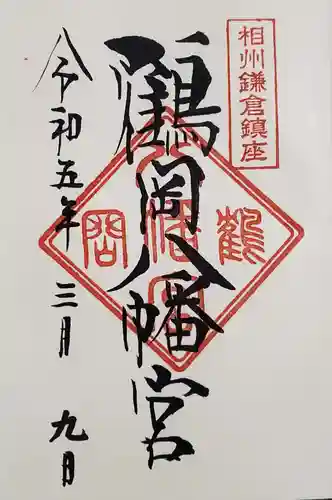 相州鎌倉鎮座
鶴岡八幡宮
令和五年三月九日
鶴岡